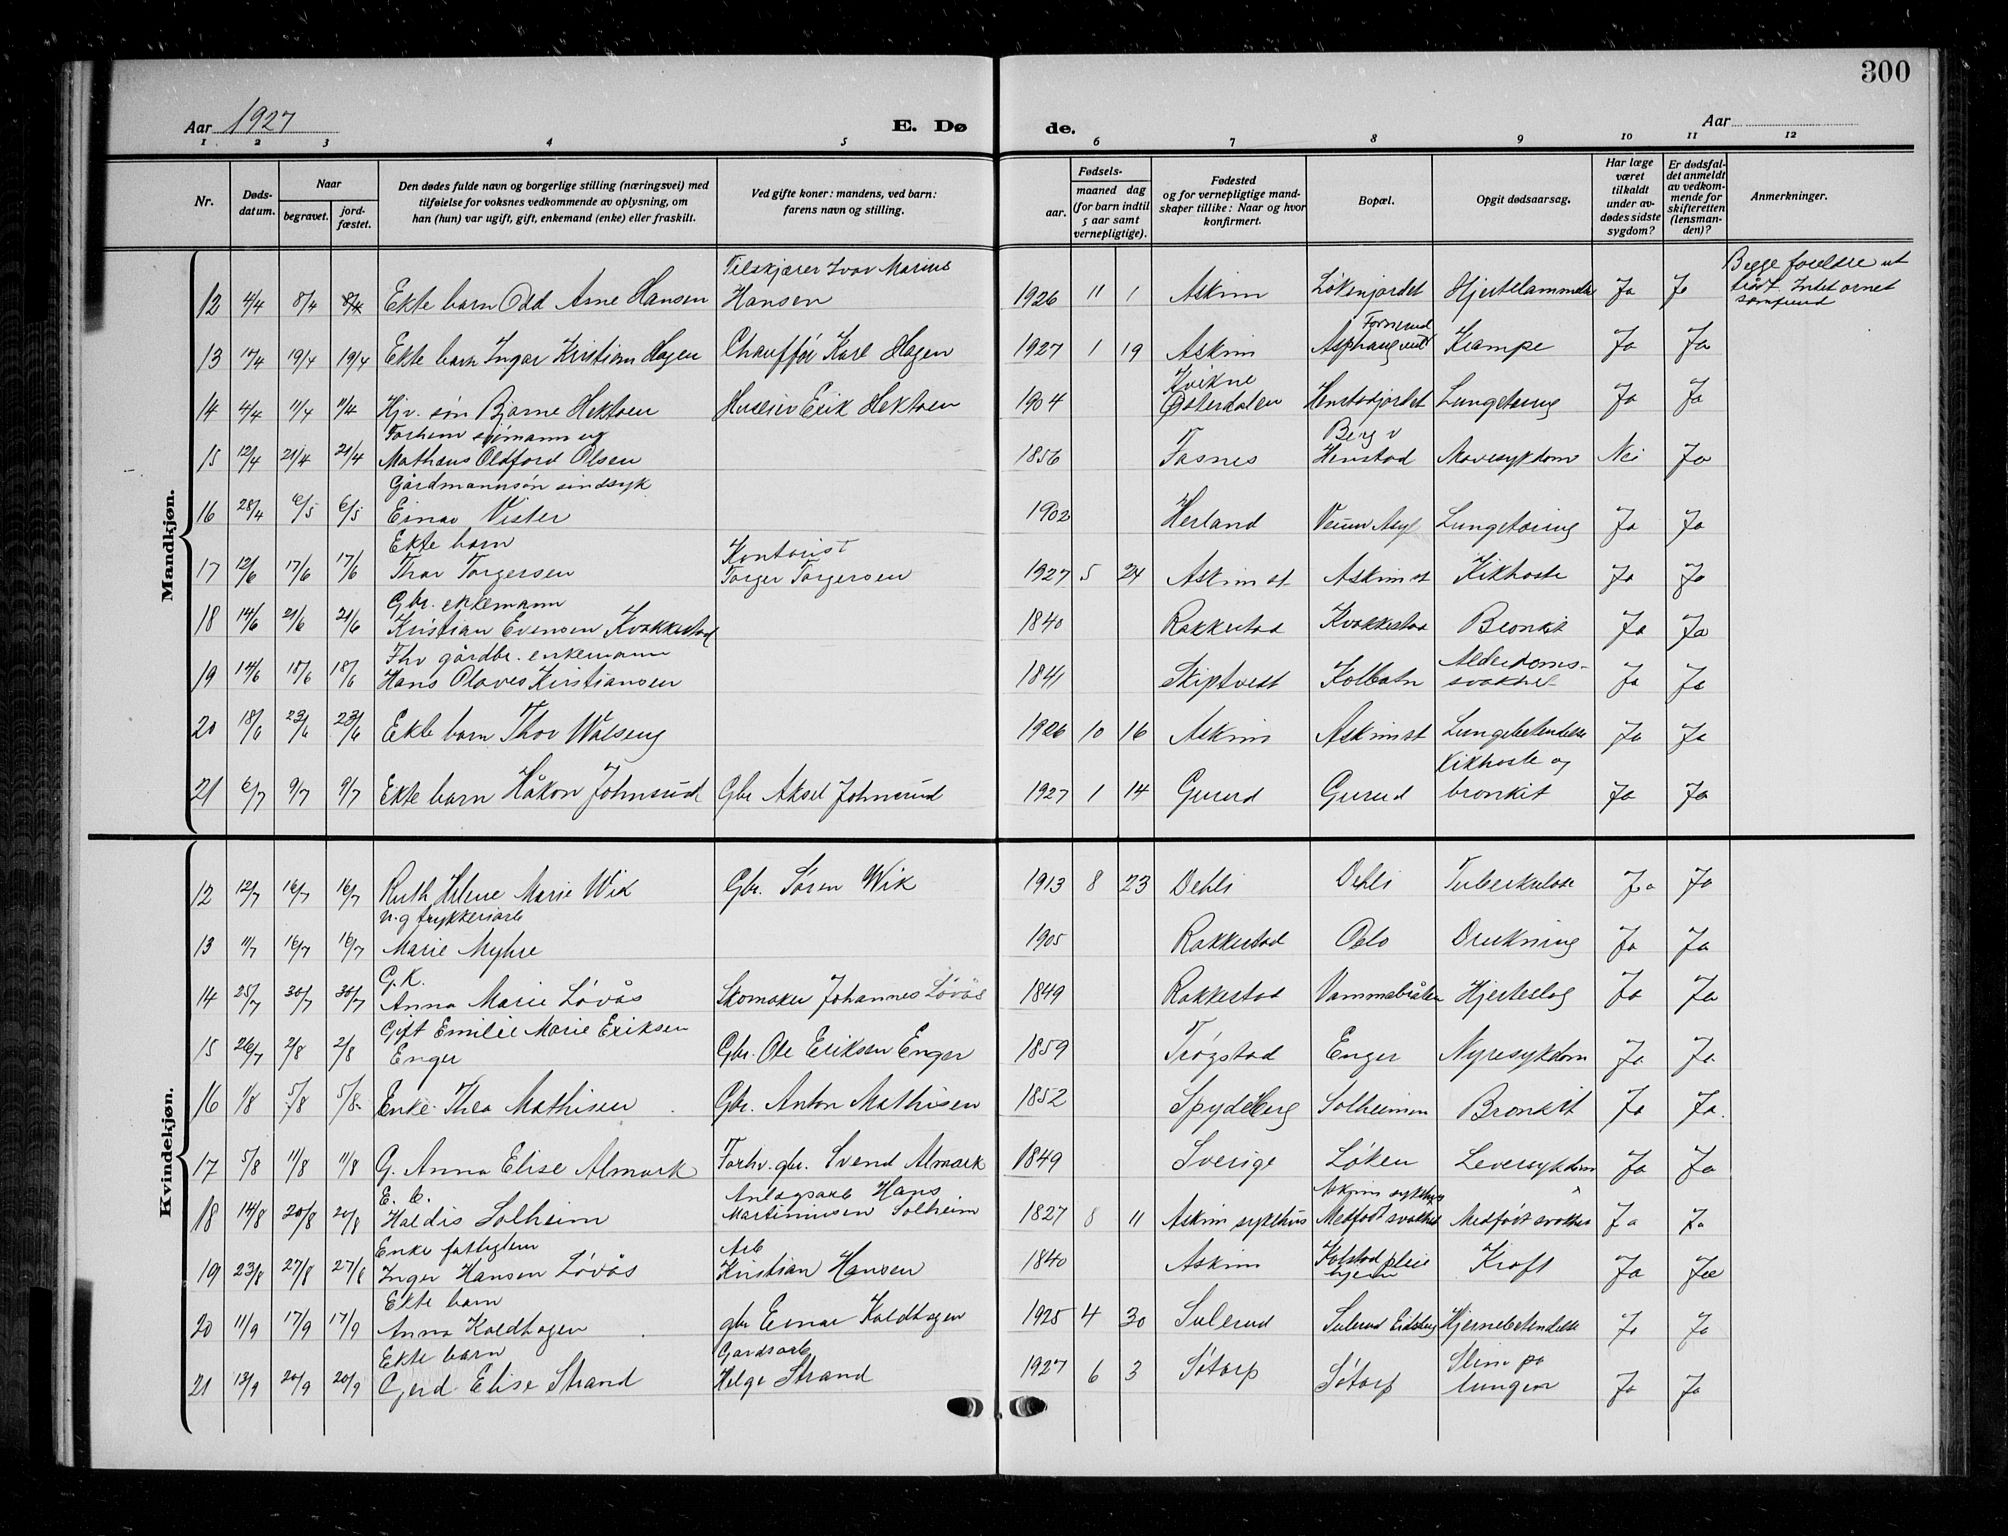 300
Aar 1927 E. Dø de. Aar
1 2 3 4 5 6 7 8 9 10 11 12
Nr. Døds-datum. Naar begravet. jord-fæstet. Den dødes fulde navn og borgerlige stilling (næringsvei) med tilføielse for voksnes vedkommende av oplysning, om han (hun) var ugift, gift, enkemand (enke) eller fraskilt. Ved gifte koner: mandens, ved barn: farens navn og stilling. Fødsels- aar. maaned dag (for barn indtil 5 aar samt vernepligtige). Fødested og for vernepligtige mandskaper tillike: Naar og hvor konfirmert. Bopæl. Opgit dødsaarsag. Har læge været tilkaldt under avdødes sidste sygdom? Er dødsfaldet anmeldt av vedkommende for skifteretten (lensmanden)? Anmerkninger.
Mandkjøn.
12 4/4 8/4 8/4 Ekte barn Odd Arne Hansen Telskjærer Ivar Marius Hansen 1926 11 1 Askim Løkenjordet Hjertelammelse Ja Ja Begge foreldre ut
13 17/4 19/4 19/4 Ekte barn Ingar Kristian Hagen Chauffør Karl Hagen 1927 1 19 Askim Krampe Ja Ja
14 4/4 11/4 11/4 Hjv. søn Bjarne Hektoen Huseier Erik Hektoen 1904 Kvikne Østerdalen Henstadjordet Lungetæring Ja Ja
15 12/4 21/4 21/4 Forhenv sjømann ug Mathæus Oldford Olsen 1856 Berg v Henstad Mavesykdom Nei Ja
16 28/4 6/5 6/5 Gardmannsøn sindsyk Einar Vister 1902 Herland Veum Asyl Lungetæring Ja Ja
17 12/6 17/6 17/6 Ekte barn Thor Torgersen Kontorist Torger Torgersen 1927 5 24 Askim st Askim st Kikhoste Ja Ja
18 14/6 21/6 21/6 Gbr. enkemann Kristian Evensen Kvakkestad 1840 Rakkestad Kvakkestad Bronkit Ja Ja
19 14/6 18/6 18/6 Fhv gårdbr. enkemann Hans Olaves Kristiansen 1841 Skiptvedt Kolbotn Alderdoms-svakhet Ja Ja
20 18/6 23/6 23/6 Ekte barn Thor Walseng 1926 10 16 Askim Askim st Lungebetendelse Ja Ja
21 6/7 9/7 9/7 Ekte barn Håkon Johnsrud Gbr Aksel Johnsrud 1927 1 14 Gurud Gurud Kikhoste og bronkit Ja Ja
Kvindekjøn.
12 12/7 16/7 16/7 Ruth Helene Marie Wik Gbr. Søren Wik 1913 8 23 Dehli Dehli Tuberkulose Ja Ja
13 11/7 16/7 16/7 u.g trykkeriarb Marie Myhre 1905 Rakkestad Oslo Drukning Ja Ja
14 25/7 30/7 30/7 G.K. Anna Marie Løvås Skomaker Johannes Løvås 1849 Rakkestad Vammebråten Hjerteslag Ja Ja
15 26/7 2/8 2/8 Gift Emilie Marie Eriksen Enger Gbr. Ole Eriksen Enger 1859 Trøgstad Enger Nyresykdom Ja Ja
16 1/8 5/8 5/8 Enke Thea Mathisen Gbr. Anton Mathisen 1852 Spydeberg Solheimen Bronkit Ja Ja.
17 5/8 11/8 11/8 G. Anna Elise Almark Forhv. gbr. Svend Almark 1849 Sverige Løken Leversykdom Ja Ja
18 14/8 20/8 20/8 E. b. Haldis Solheim Anlægsarb Hans Martiniusen Solheim 1827 8 11 Askim sykehus Askim sykehus Medfødt svakhet Medfødt svakhet Ja Ja
19 23/8 27/8 27/8 Enke fattiglem Inger Hansen Løvås Arb Kristian Hansen 1840 Askim Kolstad pleiehjem Kræft Ja Ja
20 11/9 17/9 17/9 Ekte barn Anna Koldhagen gbr Einar Koldhagen 1925 4 30 Sulerud Sulerud Eidsberg Hjernebetendelse Ja Ja
21 13/9 20/9 20/9 Ekte barn Gerd Elise Strand Gardsarb Helge Strand 1927 6 3 Søtorp Søtorp Slim på lungen Ja Ja